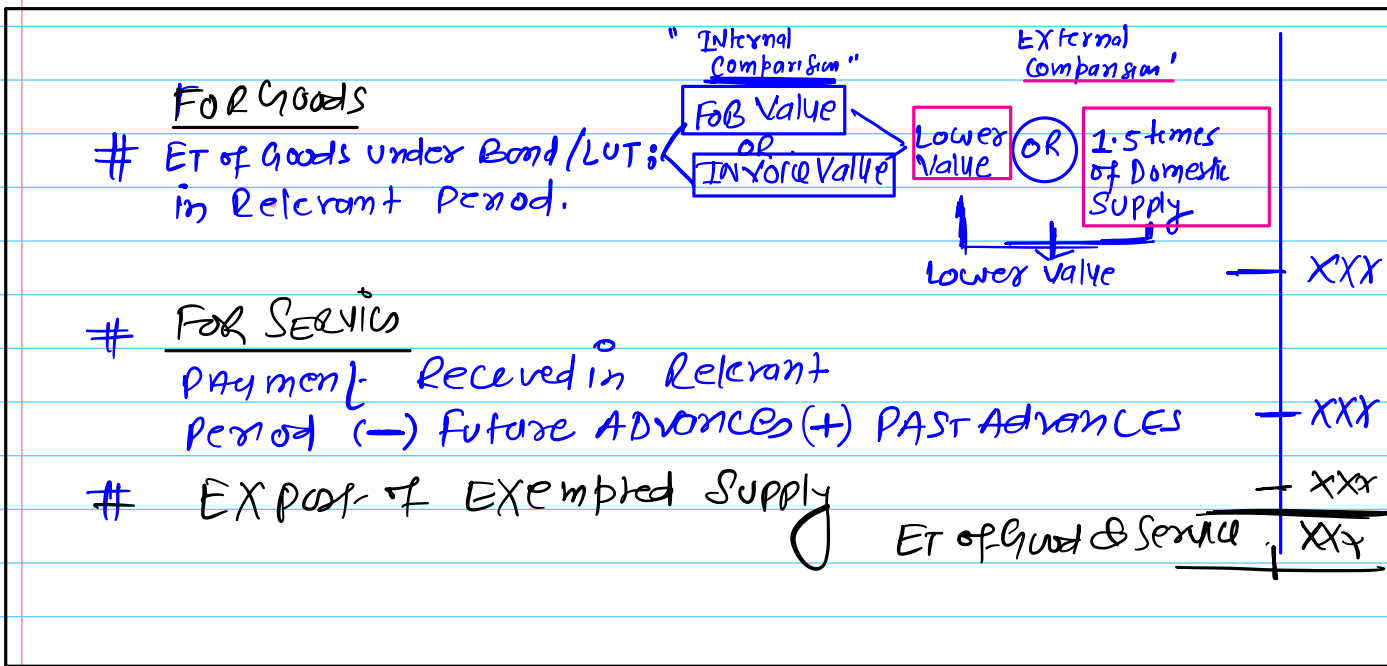 " Internal Comparision "
External Comparison '
FOR Goods
# ET of Goods under Bond/LUT :
in Relevant Period.
FOB Value
OR
INVOICE Value
Lower Value
OR
1.5 times of Domestic Supply
Lower Value — XXX
# FOR SERVICS
PAYment Receved in Relevant
Period (—) Future ADVANCES (+) PAST AdvanCES — XXX
# EXport of EXempted Supply — XXX
ET of Good & Service. XXX